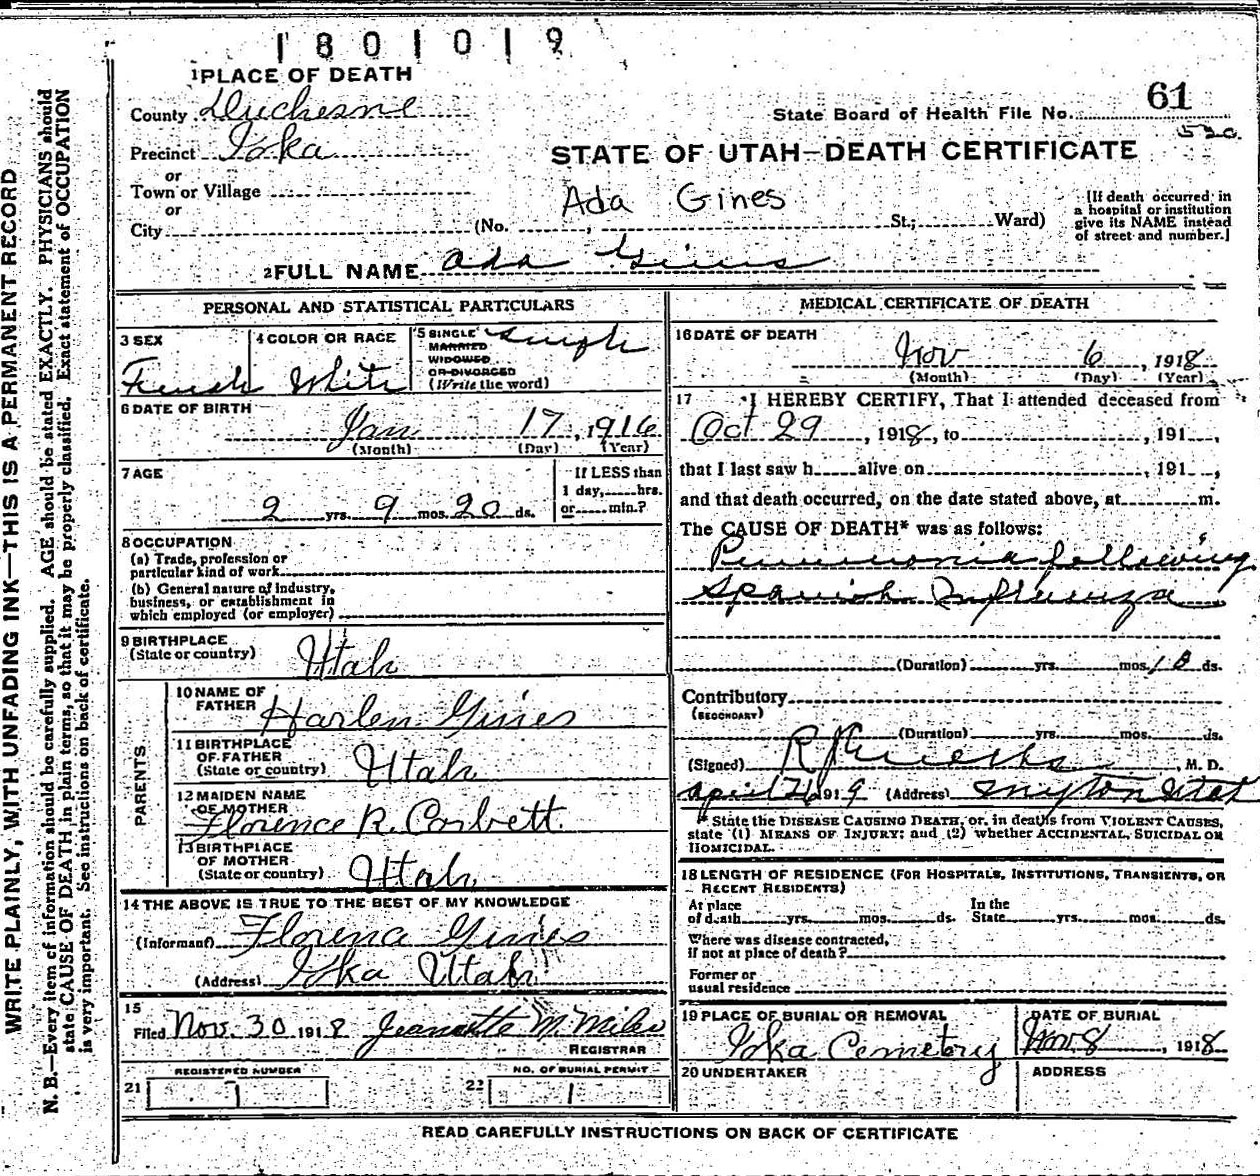 1801019
1 PLACE OF DEATH
County Duchesne
State Board of Health File No. 61
530
Precinct Ioka
STATE OF UTAH—DEATH CERTIFICATE
or
Town or Village
or
City
Ada Gines
(No. , St.; Ward)
[If death occurred in
a hospital or institution
give its NAME instead
of street and number.]
2 FULL NAME Ada Gines
PERSONAL AND STATISTICAL PARTICULARS
3 SEX
Female
4 COLOR OR RACE
White
5 SINGLE Single
MARRIED
WIDOWED
OR DIVORCED
(Write the word)
6 DATE OF BIRTH
Jan 17, 1916
(Month) (Day) (Year)
7 AGE
2 yrs. 9 mos. 20 ds.
If LESS than
1 day, hrs.
or min.?
8 OCCUPATION
(a) Trade, profession or
particular kind of work
(b) General nature of industry,
business, or establishment in
which employed (or employer)
9 BIRTHPLACE
(State or country) Utah
PARENTS
10 NAME OF
FATHER Harlen Gines
11 BIRTHPLACE
OF FATHER
(State or country) Utah
12 MAIDEN NAME
OF MOTHER
Florence R. Corbett
13 BIRTHPLACE
OF MOTHER
(State or country) Utah
14 THE ABOVE IS TRUE TO THE BEST OF MY KNOWLEDGE
(Informant) Florence Gines
(Address) Ioka Utah
15
Filed Nov. 30 1918 Jeannette M. Miles
REGISTRAR
REGISTERED NUMBER
21
NO. OF BURIAL PERMIT
22
MEDICAL CERTIFICATE OF DEATH
16 DATE OF DEATH
Nov 6, 1918
(Month) (Day) (Year)
17 I HEREBY CERTIFY, That I attended deceased from
Oct 29, 1918, to , 191 ,
that I last saw h alive on , 191 ,
and that death occurred, on the date stated above, at m.
The CAUSE OF DEATH* was as follows:
Pneumonia following
Spanish Influenza
(Duration) yrs. mos. 10 ds.
Contributory
(SECONDARY)
(Duration) yrs. mos. ds.
(Signed) , M. D.
April 26 1919 (Address) Myton Utah
* State the DISEASE CAUSING DEATH, or, in deaths from VIOLENT CAUSES,
state (1) MEANS OF INJURY; and (2) whether ACCIDENTAL, SUICIDAL OR
HOMICIDAL.
18 LENGTH OF RESIDENCE (FOR HOSPITALS, INSTITUTIONS, TRANSIENTS, OR
RECENT RESIDENTS)
At place
of death yrs. mos. ds.
In the
State yrs. mos. ds.
Where was disease contracted,
if not at place of death?
Former or
usual residence
19 PLACE OF BURIAL OR REMOVAL
Ioka Cemetery
DATE OF BURIAL
Nov 8, 1918
20 UNDERTAKER
ADDRESS
READ CAREFULLY INSTRUCTIONS ON BACK OF CERTIFICATE
WRITE PLAINLY, WITH UNFADING INK—THIS IS A PERMANENT RECORD
N. B.—Every item of information should be carefully supplied. AGE should be stated EXACTLY. PHYSICIANS should
state CAUSE OF DEATH in plain terms, so that it may be properly classified. Exact statement of OCCUPATION
is very important. See instructions on back of certificate.